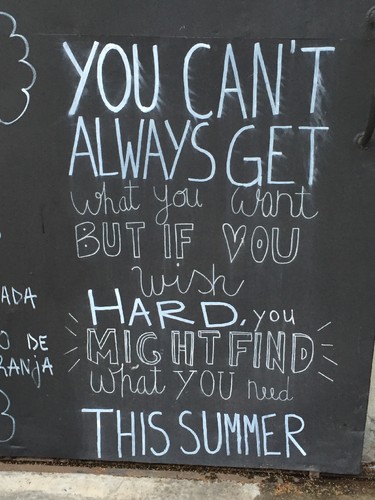 YOU CAN'T
ALWAYS GET
what you want
BUT IF YOU
wish
HARD, you
MIGHT FIND
what YOU need
THIS SUMMER
ADA
O DE
RANJA